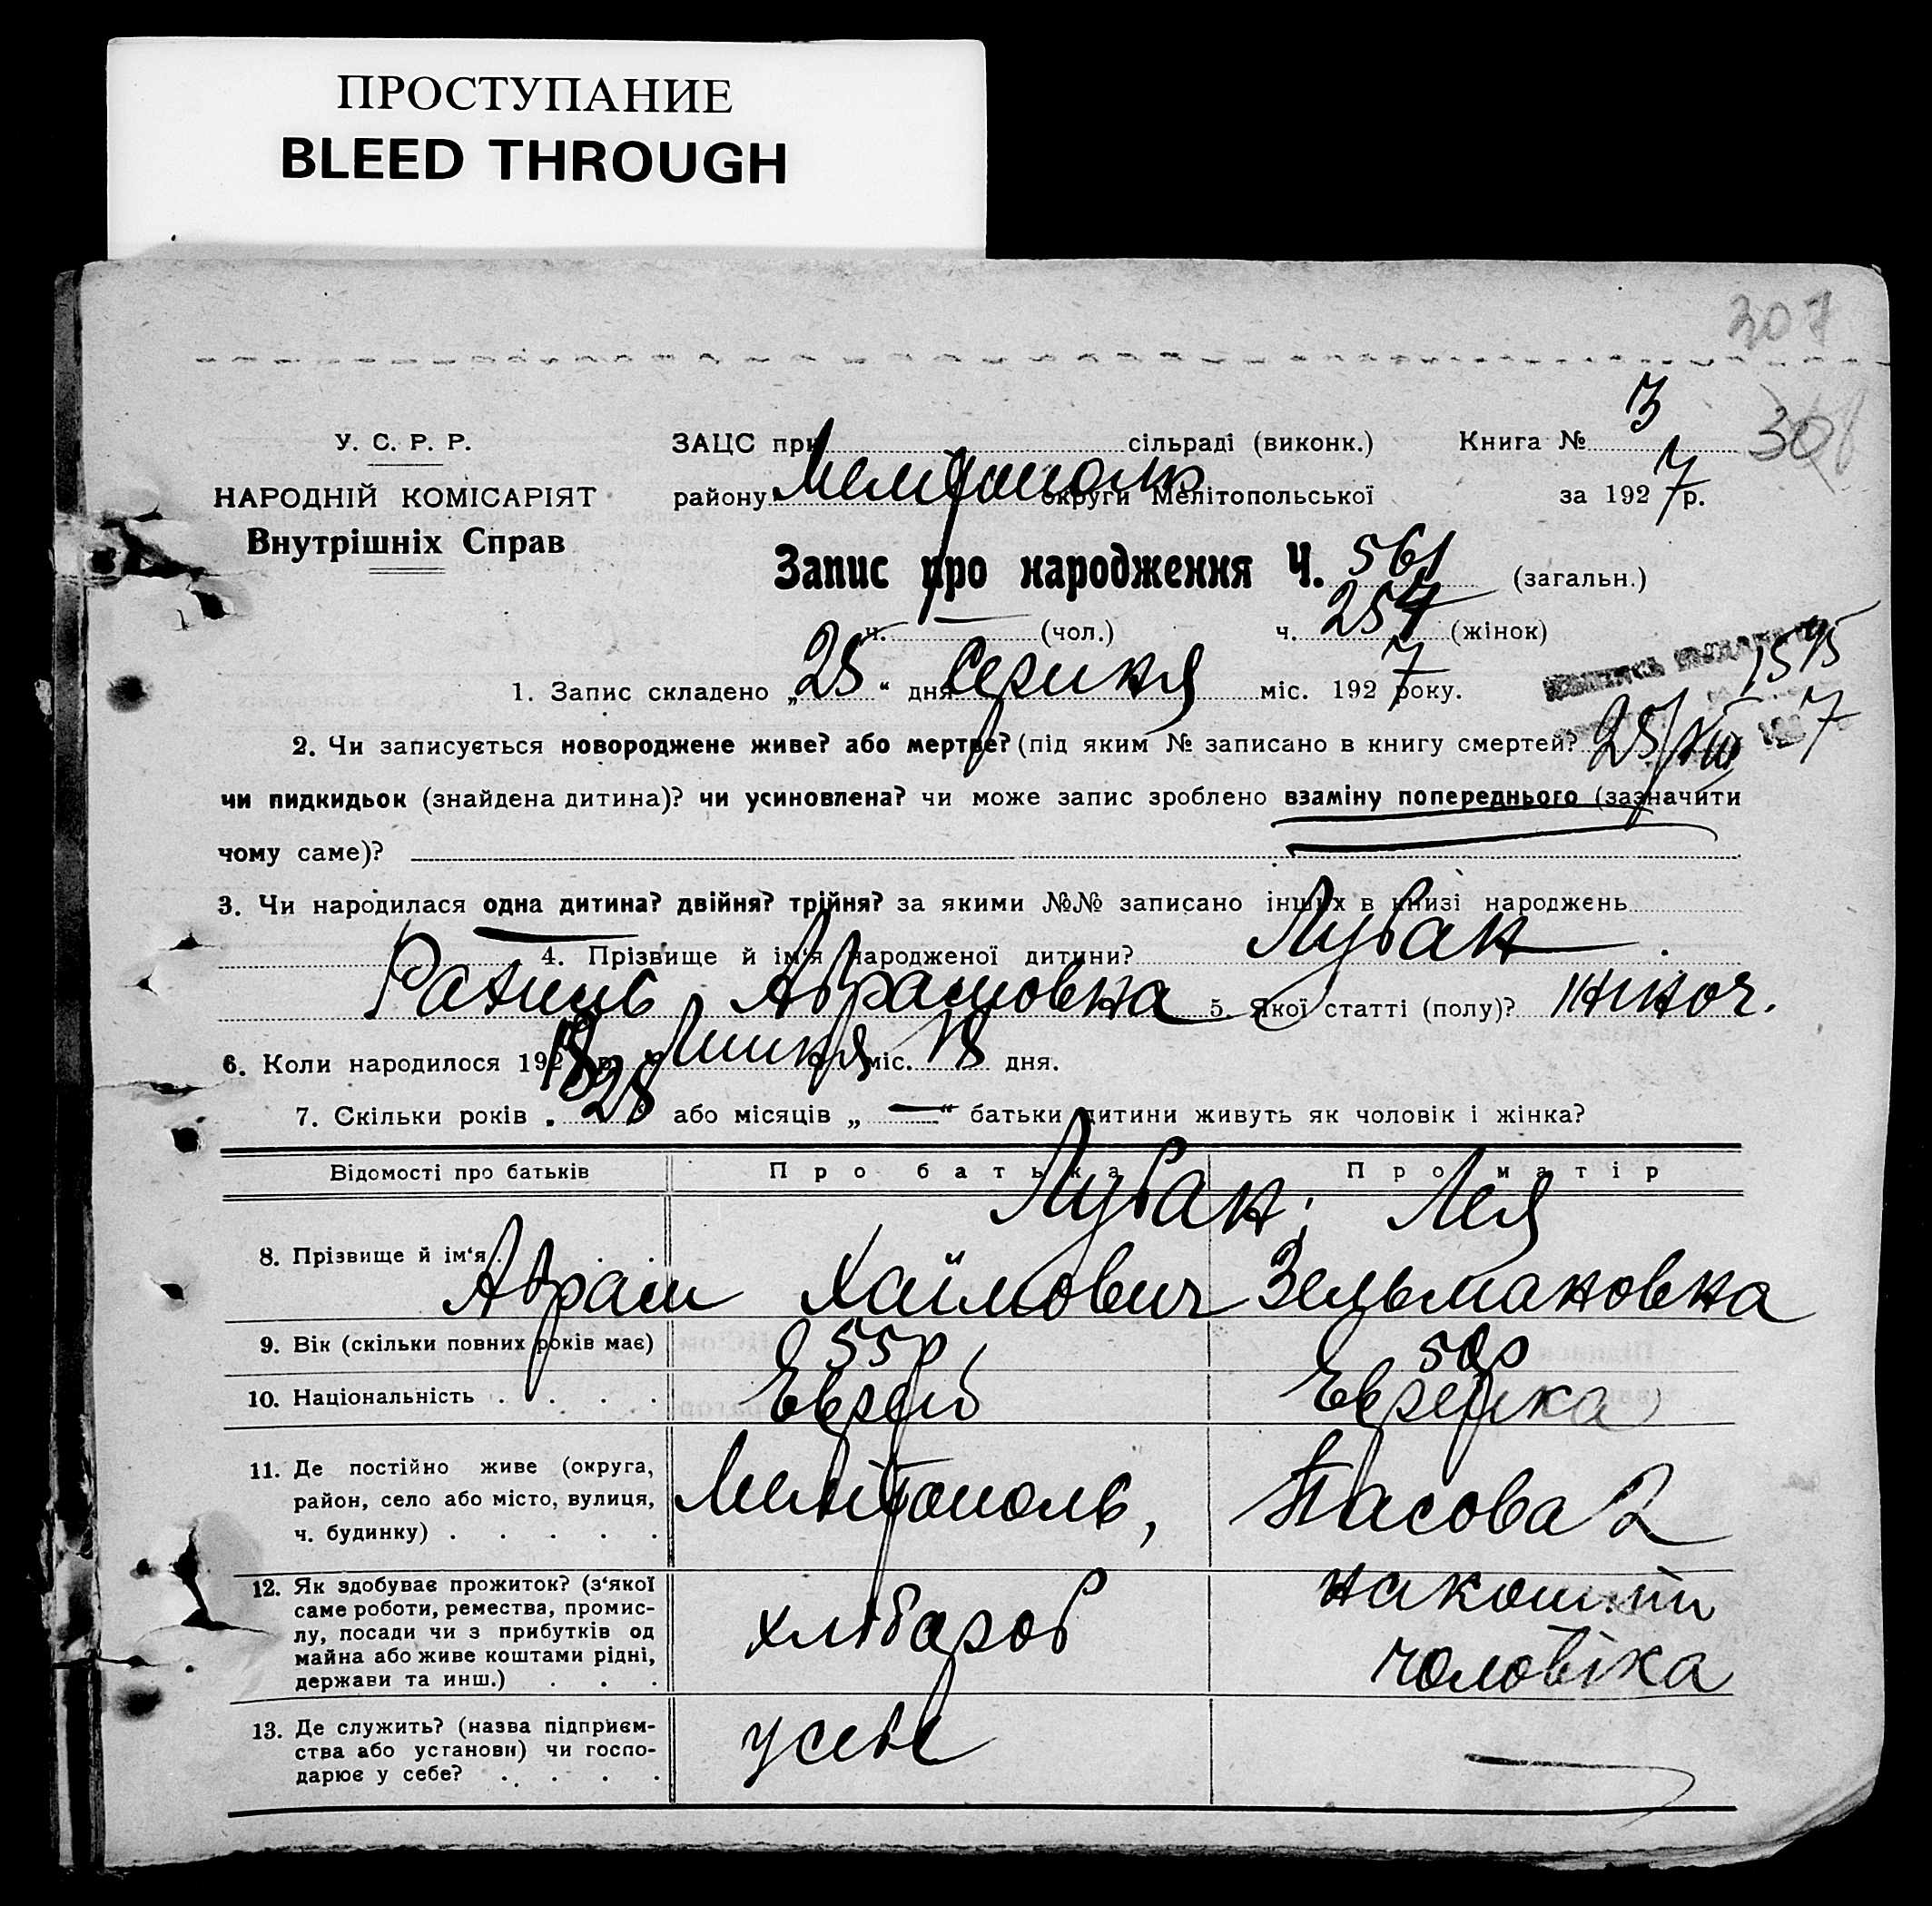 ПРОСТУПАНИЕ
BLEED THROUGH
307
3
У. С. Р. Р. ЗАЦС при сільраді (виконк.) Книга № 30
НАРОДНІЙ КОМІСАРІЯТ району Мелітополь округи Мелітопольської за 1927 р.
Внутрішніх Справ
Запис про народження Ч. 561 (загальн.)
ч. — (чол.) ч. 254 (жінок)
1575
1. Запис складено „25“ дня Серпня міс. 1927 року.
2. Чи записується новороджене живе? або мертве? (під яким № записано в книгу смертей? 25/VIII 1927
чи пидкидьок (знайдена дитина)? чи усиновлена? чи може запис зроблено взаміну попереднього (зазначити
чому саме)?
3. Чи народилася одна дитина? двійня? трійня? за якими №№ записано інших в книзі народжень
4. Прізвище й ім‘я народженої дитини? Лубан
Рахиль Абрамовна 5. Якої статті (полу)? жіноч.
6. Коли народилося 192 р. Липня міс. 18 дня.
7. Скільки років „ 28 або місяців „ — “ батьки дитини живуть як чоловік і жінка?
Відомості про батьків Про батька Про матір
Лубан; Лея
8. Прізвище й ім‘я Абрам Хаїмович Зельмановна
9. Вік (скільки повних років має) 55р. 50р
10. Національність Еврей Еврейка
11. Де постійно живе (округа,
район, село або місто, вулиця, Мелітополь, 2
ч. будинку)
12. Як здобуває прожиток? (з‘якої на кошти
саме роботи, ремества, промис-
лу, посади чи з прибутків од хлібороб
майна або живе коштами рідні, чоловіка
держави та инш.)
13. Де служить? (назва підприєм-
ства або установи) чи госпо- у себе —
дарює у себе?